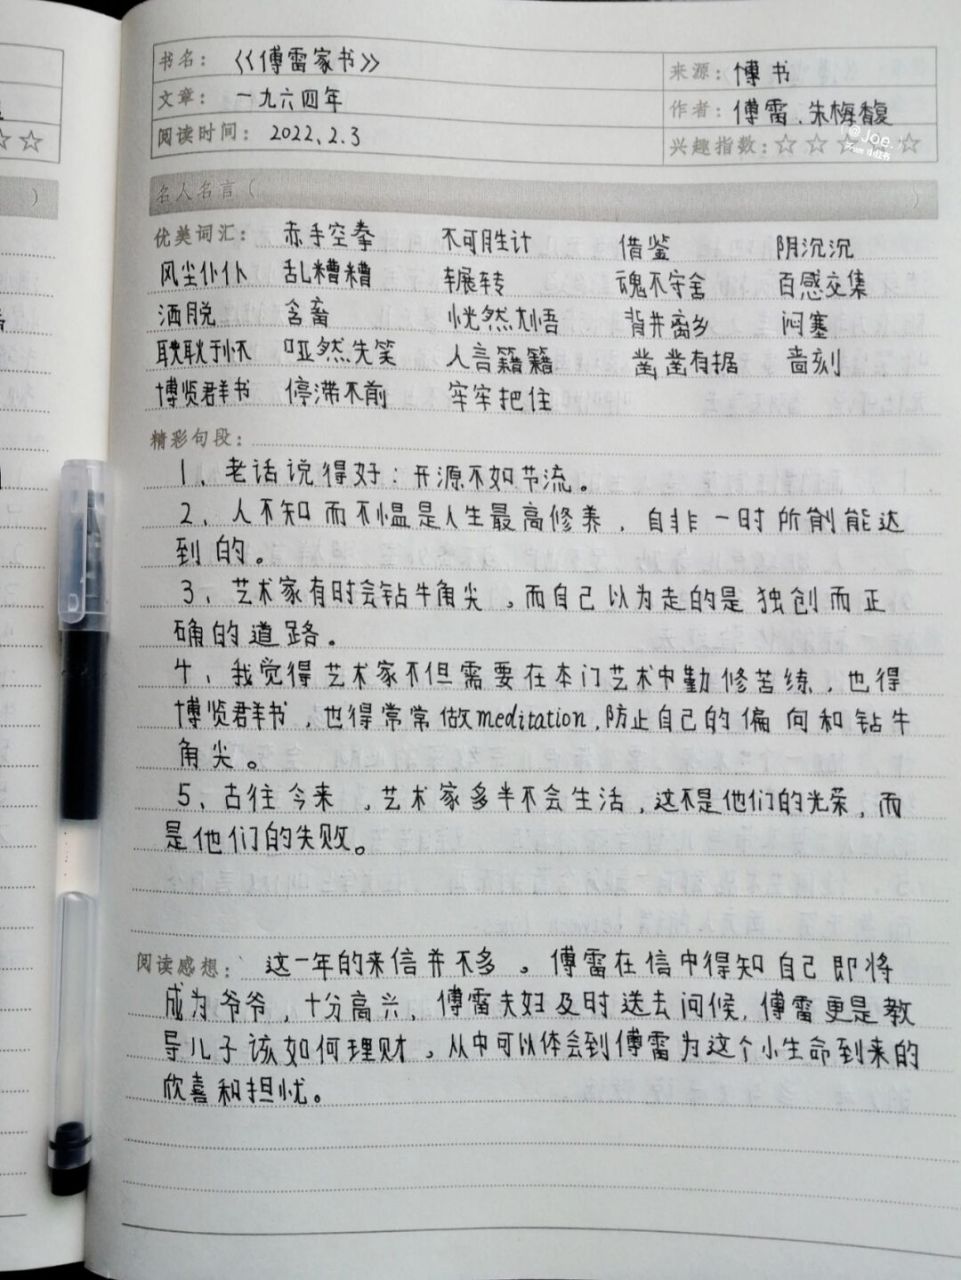 书名：《傅雷家书》 来源：傅书
文章：一九六四年 作者：傅雷、朱梅馥
阅读时间：2022.2.3 兴趣指数：☆☆☆☆
@Joe.
小红书
名人名言（ ）
优美词汇： 赤手空拳 不可胜计 借鉴 阴沉沉
风尘仆仆 乱糟糟 辗转 魂不守舍 百感交集
洒脱 含蓄 恍然大悟 背井离乡 闷塞
耿耿于怀 哑然失笑 人言籍籍 凿凿有据 啬刻
博览群书 停滞不前 牢牢把住
精彩句段：
1、老话说得好：开源不如节流。
2、人不知而不愠是人生最高修养，自非一时所能达
到的。
3、艺术家有时会钻牛角尖，而自己以为走的是独创而正
确的道路。
4、我觉得艺术家不但需要在本门艺术中勤修苦练，也得
博览群书，也得常常做meditation,防止自己的偏向和钻牛
角尖。
5、古往今来，艺术家多半不会生活，这不是他们的光荣，而
是他们的失败。
阅读感想： 这一年的来信并不多。傅雷在信中得知自己即将
成为爷爷，十分高兴，傅雷夫妇及时送去问候，傅雷更是教
导儿子该如何理财。从中可以体会到傅雷为这个小生命到来的
欣喜和担忧。